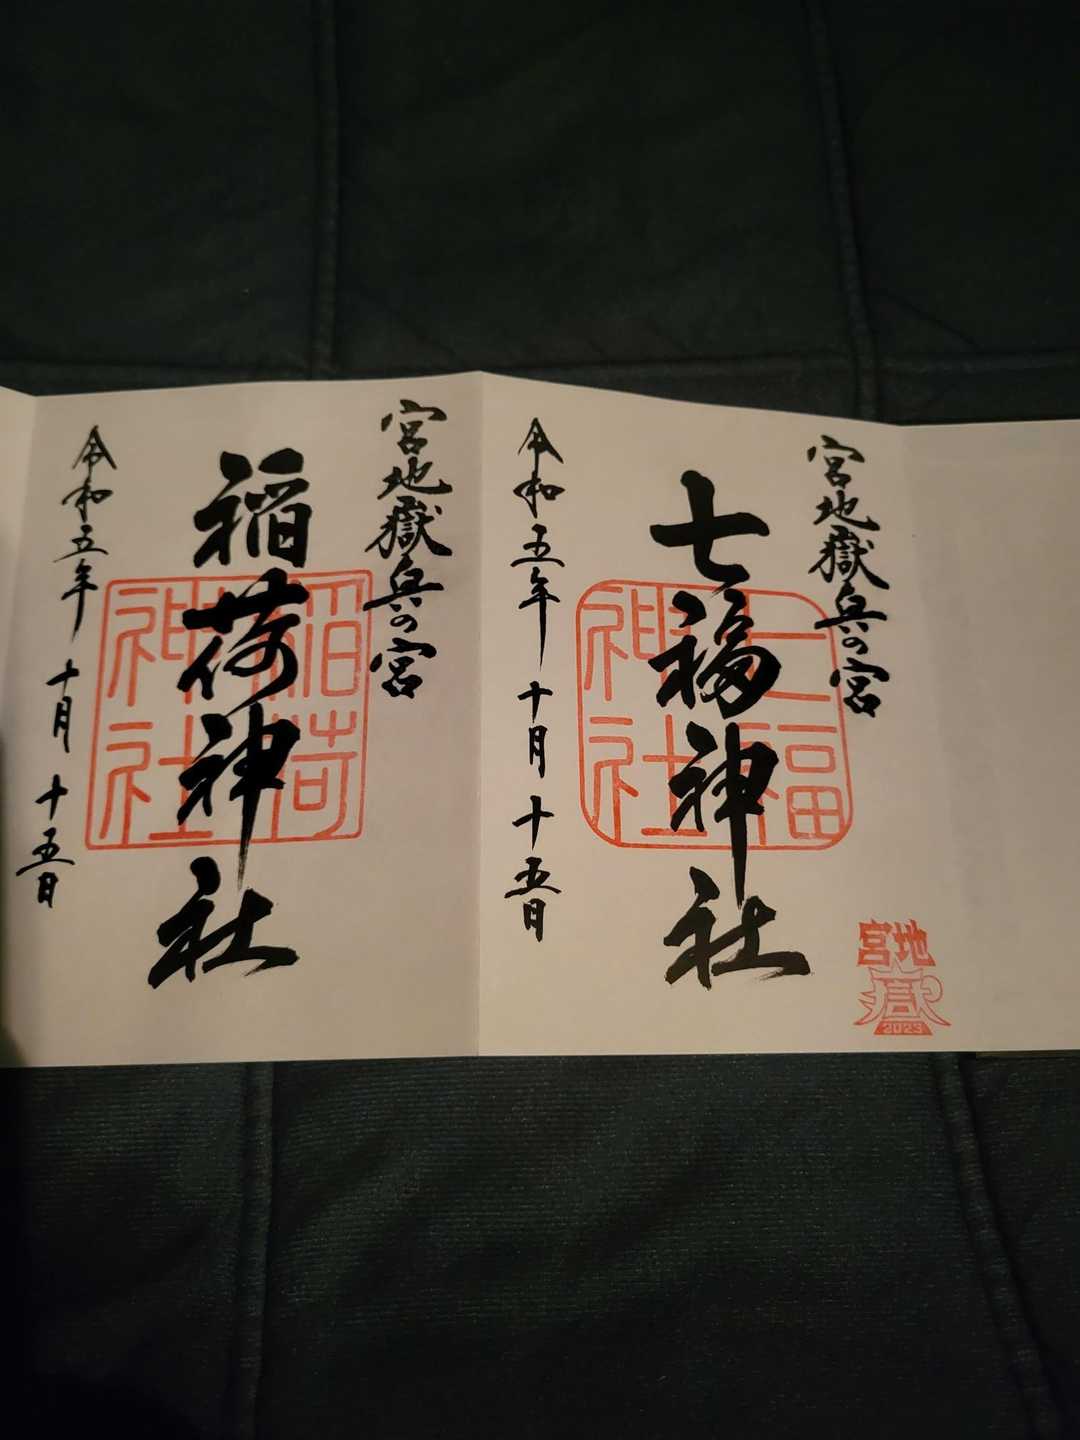 宮地嶽奥の宮
七福神社
七福
神社
令和五年 十月 十五日
宮地
嶽
2023
宮地嶽奥の宮
稲荷神社
稲荷
神社
令和五年 十月 十五日